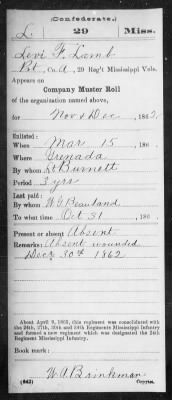 (Confederate.)
L. 29 Miss.
Levi F. Lamb
Pvt, Co. A, 29 Reg't Mississippi Vols.
Appears on
Company Muster Roll
of the organization named above,
for Nov & Dec, 1862.
Enlisted:
When Mar 15, 186
Where Grenada
By whom Lt Burnett
Period 3 yrs
Last paid:
By whom W. G. Beauland
To what time Oct 31, 186
Present or absent Absent
Remarks: Absent wounded
Decr 30th 1862
About April 9, 1865, this regiment was consolidated with
the 24th, 27th, 30th and 34th Regiments Mississippi Infantry
and formed a new regiment which was designated the 24th
Regiment Mississippi Infantry.
Book mark:
W. A. Brinkman
(642) Copyist.